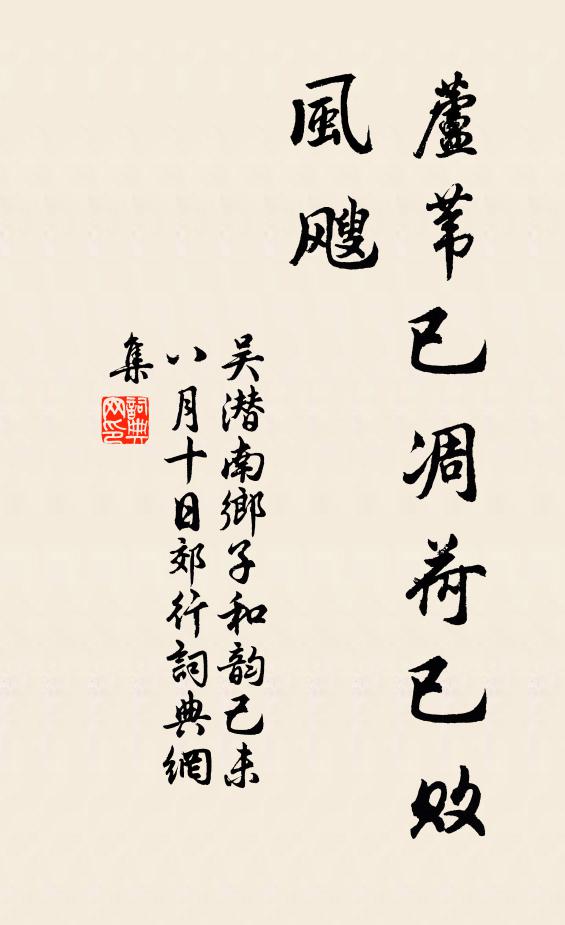 蘆葦已凋荷已敗
風颼
吴潜南鄉子和韵己未
八月十日郊行詞典網
集
詞典
网印